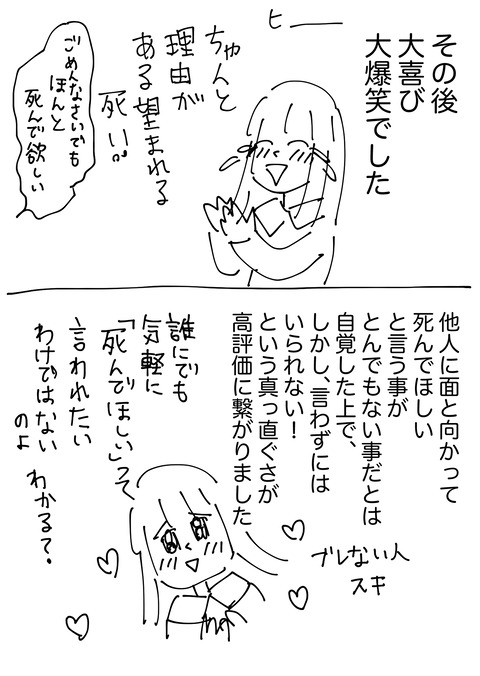 その後
大喜び
大爆笑でした
ヒ――
ちゃんと
理由が
ある望まれる
死い。
ごめんなさいでも
ほんと
死んで欲しい
他人に面と向かって
死んでほしい
と言う事が
とんでもない事だとは
自覚した上で、
しかし、言わずには
いられない!
という真っ直ぐさが
高評価に繋がりました
誰にでも
気軽に
「死んでほしい」って
言われたい
わけではない
のよ
わかる?
ブレない人
スキ